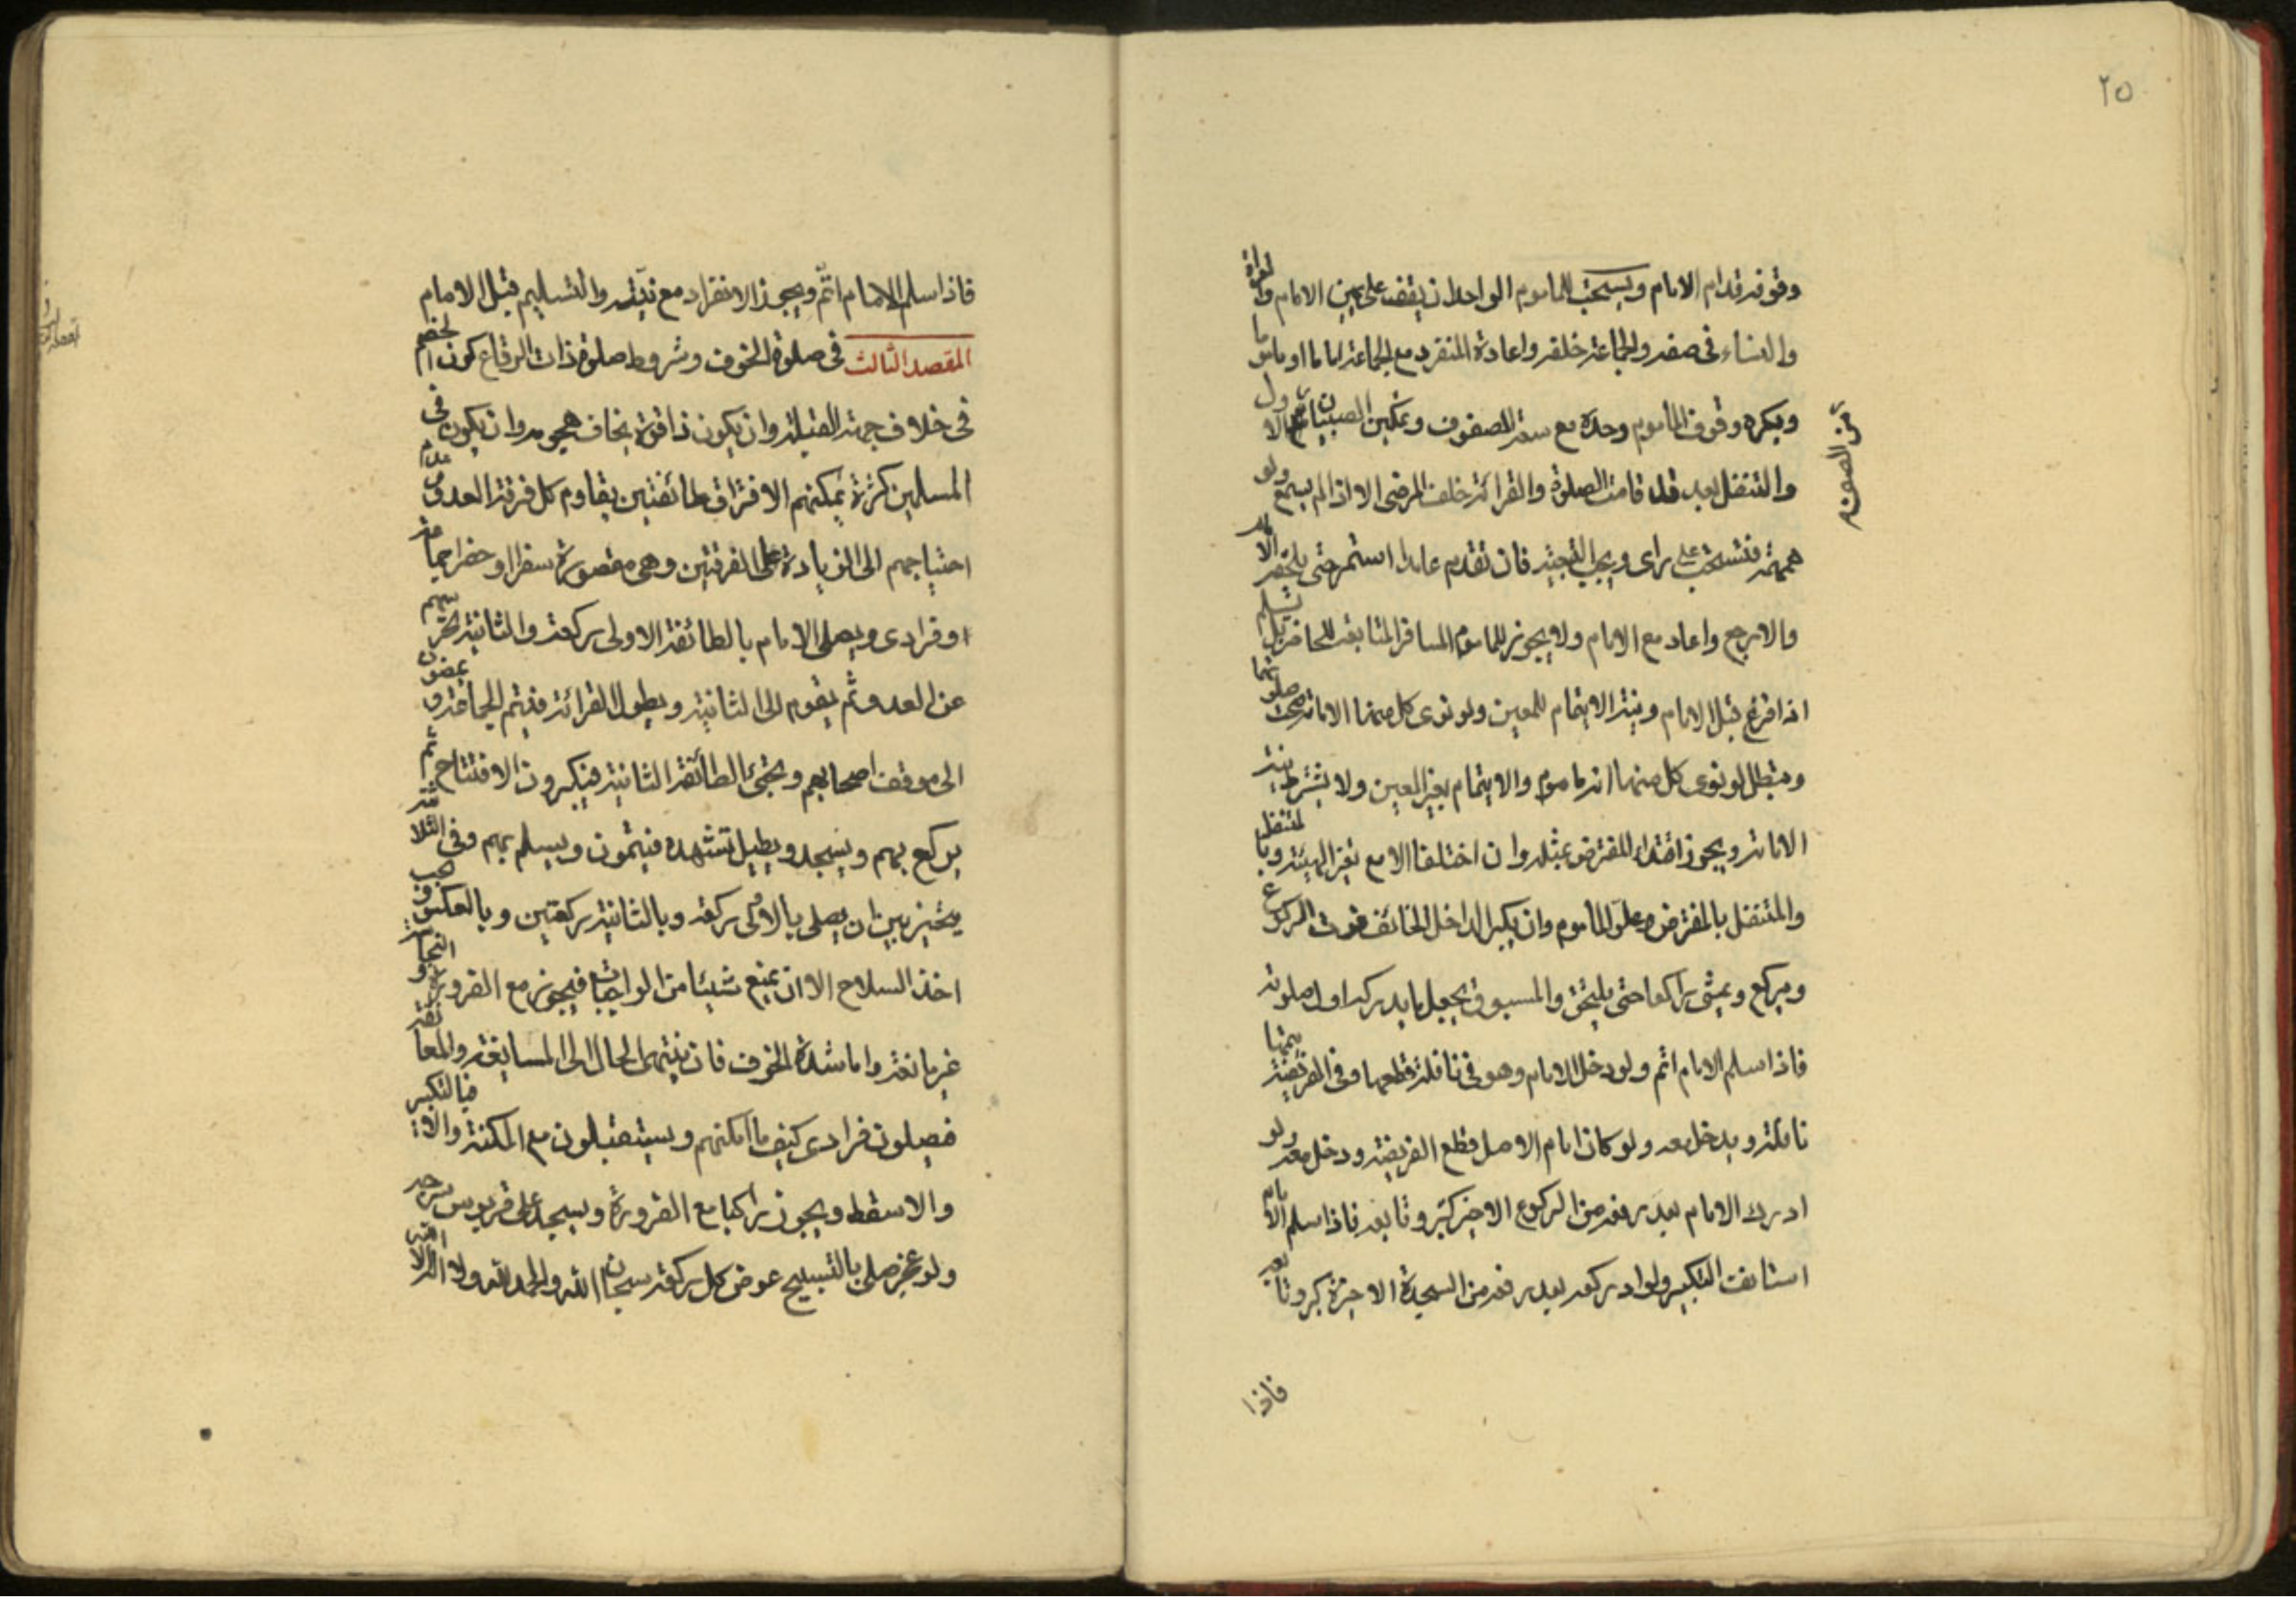 ٢٥
وقوفه قدام الامام ويستحب للماموم الواحد ان يقف على يمين الامام والعراة
والنساء في صفه والجماعة خلفه واعادة المنفرد مع الجماعة اماما او ماموما
ويكره وقوف المأموم وحده مع سعة الصفوف وتمكين الصبيان من الاول
من الصف
والتنفل بعد قد قامت الصلوة والقرائة خلف المرضى الا اذا لم يسمع ولو
همهمة فتستحب على راى ويجب التبعية فان تقدم عامدا استمر حتى يلحقه الامام
والا رجع واعاد مع الامام ولا يجوز للماموم المسافر المتابعة للحاضر بل يسلم
اذا فرغ قبل الامام ونية الايتمام للمعين ولو نوى كل منهما الامامة صحت صلوتهما
وتبطل لو نوى كل منهما انه ماموم والايتمام بغير المعين ولا يشترط نية
الامامة ويجوز اقتداء المفترض بمثله وان اختلفا الا مع تغير الهيئة وبالمتنفل
والمتنفل بالمفترض وعلو المأموم وان يكبر الداخل الخائف فوت الركوع
ويركع ويمشى راكعا حتى يلتحق والمسبوق يجعل ما يدركه اول صلوته
فاذا سلم الامام اتم ولو دخل الامام وهو في نافلة قطعها وفي الفريضة يتمها
نافلة ويدخل معه ولو كان امام الاصل قطع الفريضة ودخل معه ولو
ادرك الامام بعد رفعه من الركوع الاخير كبر وتابعه فاذا سلم الامام
استانف التكبير ولو ادركه بعد رفعه من السجدة الاخيرة كبر وتابعه
فاذا
فاذا سلم الامام اتم ويجوز الانفراد مع نيته والتسليم قبل الامام
المقصد الثالث في صلوة الخوف وشروط صلوة ذات الرقاع كون الخصم
في خلاف جهة القبلة وان يكون ذا قوة يخاف هجومه وان يكون في
المسلمين كثرة يمكنهم الافتراق طائفتين يقاوم كل فرقة العدو وعدم
احتياجهم الى الزيادة على الفرقتين وهي مقصورة سفرا او حضرا جماعة
او فرادى ويصلى الامام بالطائفة الاولى ركعة والثانية تحرسهم
عن العدو ثم يقوم الى الثانية ويطول القرائة فيتم الجماعة ويمضون
الى موقف اصحابهم ويجئ الطائفة الثانية فيكبرون الافتتاح ثم
يركع بهم ويسجد ويطيل تشهده فيتمون ويسلم بهم وفي الثلاثة
يتخير بين ان يصلى بالاولى ركعة وبالثانية ركعتين وبالعكس ويجب
اخذ السلاح الا ان يمنع شيئا من الواجبات فيجوز مع الضرورة والنجاسة
غير مانعة واما شدة الخوف فان ينتهى الحال الى المسايفة والمعانقة
فيصلون فرادى كيف ما امكنهم ويستقبلون مع المكنة والا فبالتكبير
والا سقط ويجوز راكبا مع الضرورة ويسجد على قربوس سرجه
ولو عجز صلى بالتسبيح عوض كل ركعة سبحان الله والحمد لله ولا اله الا الله